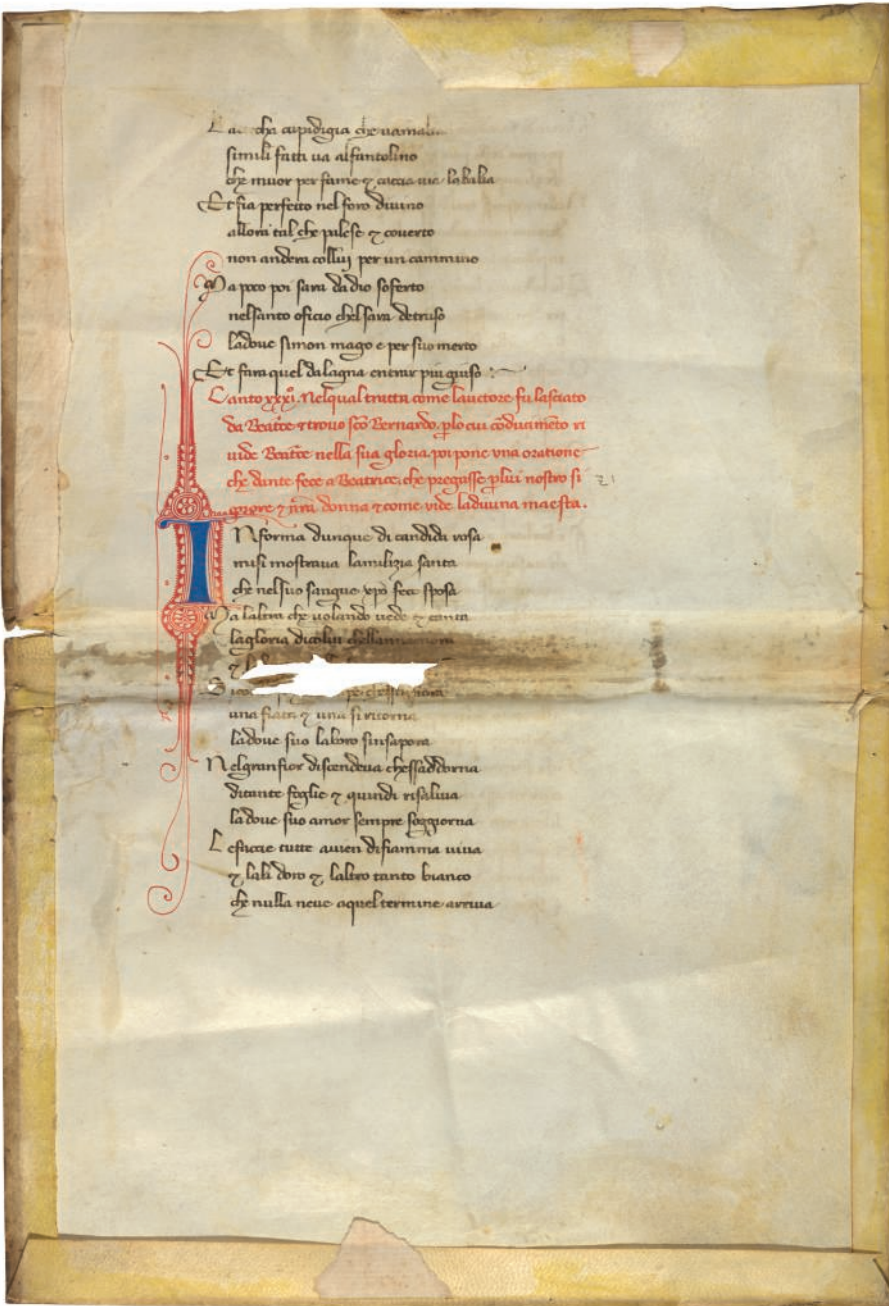 La cha cupidigia che vamalia
simili fatti va alfantolino
che muor per fame ⁊ caccia via labalia
Et fia perfecto nel foro divino
allora tal che palese ⁊ coverto
non andera collui per un cammino
Ma poco poi sara dadio soferto
nelsanto oficio chelsara detruso
ladove simon mago e per suo merto
Et fara quel dalagna entrar piu giuso
Canto xxxi. Nelqual tratta come lauctore fu lasciato
da Beatce ⁊ trovo sco Bernardo. plo cui coducimeto ri
vide Beatce nella sua gloria. poi pone una oratione
che dante fece a Beatrice. che pregasse plui nostro si
gnore ⁊ nra donna ⁊ come vide ladivina maesta.
IN forma dunque di candida rosa
misi mostrava lamilizia santa
che nelsuo sangue xpo fece sposa
Ma laltra che volando vede ⁊ canta
lagloria dicolui
⁊
una fiata ⁊ una si ritorna
ladove suo laboro sinsapora
Nelgranfior discendeva chessaddorna
ditante foglie ⁊ quindi risaliva
ladove suo amor sempre soggiorna
Lefaccie tutte avien difiamma viva
⁊ lali doro ⁊ laltro tanto bianco
che nulla neve aquel termine arriva